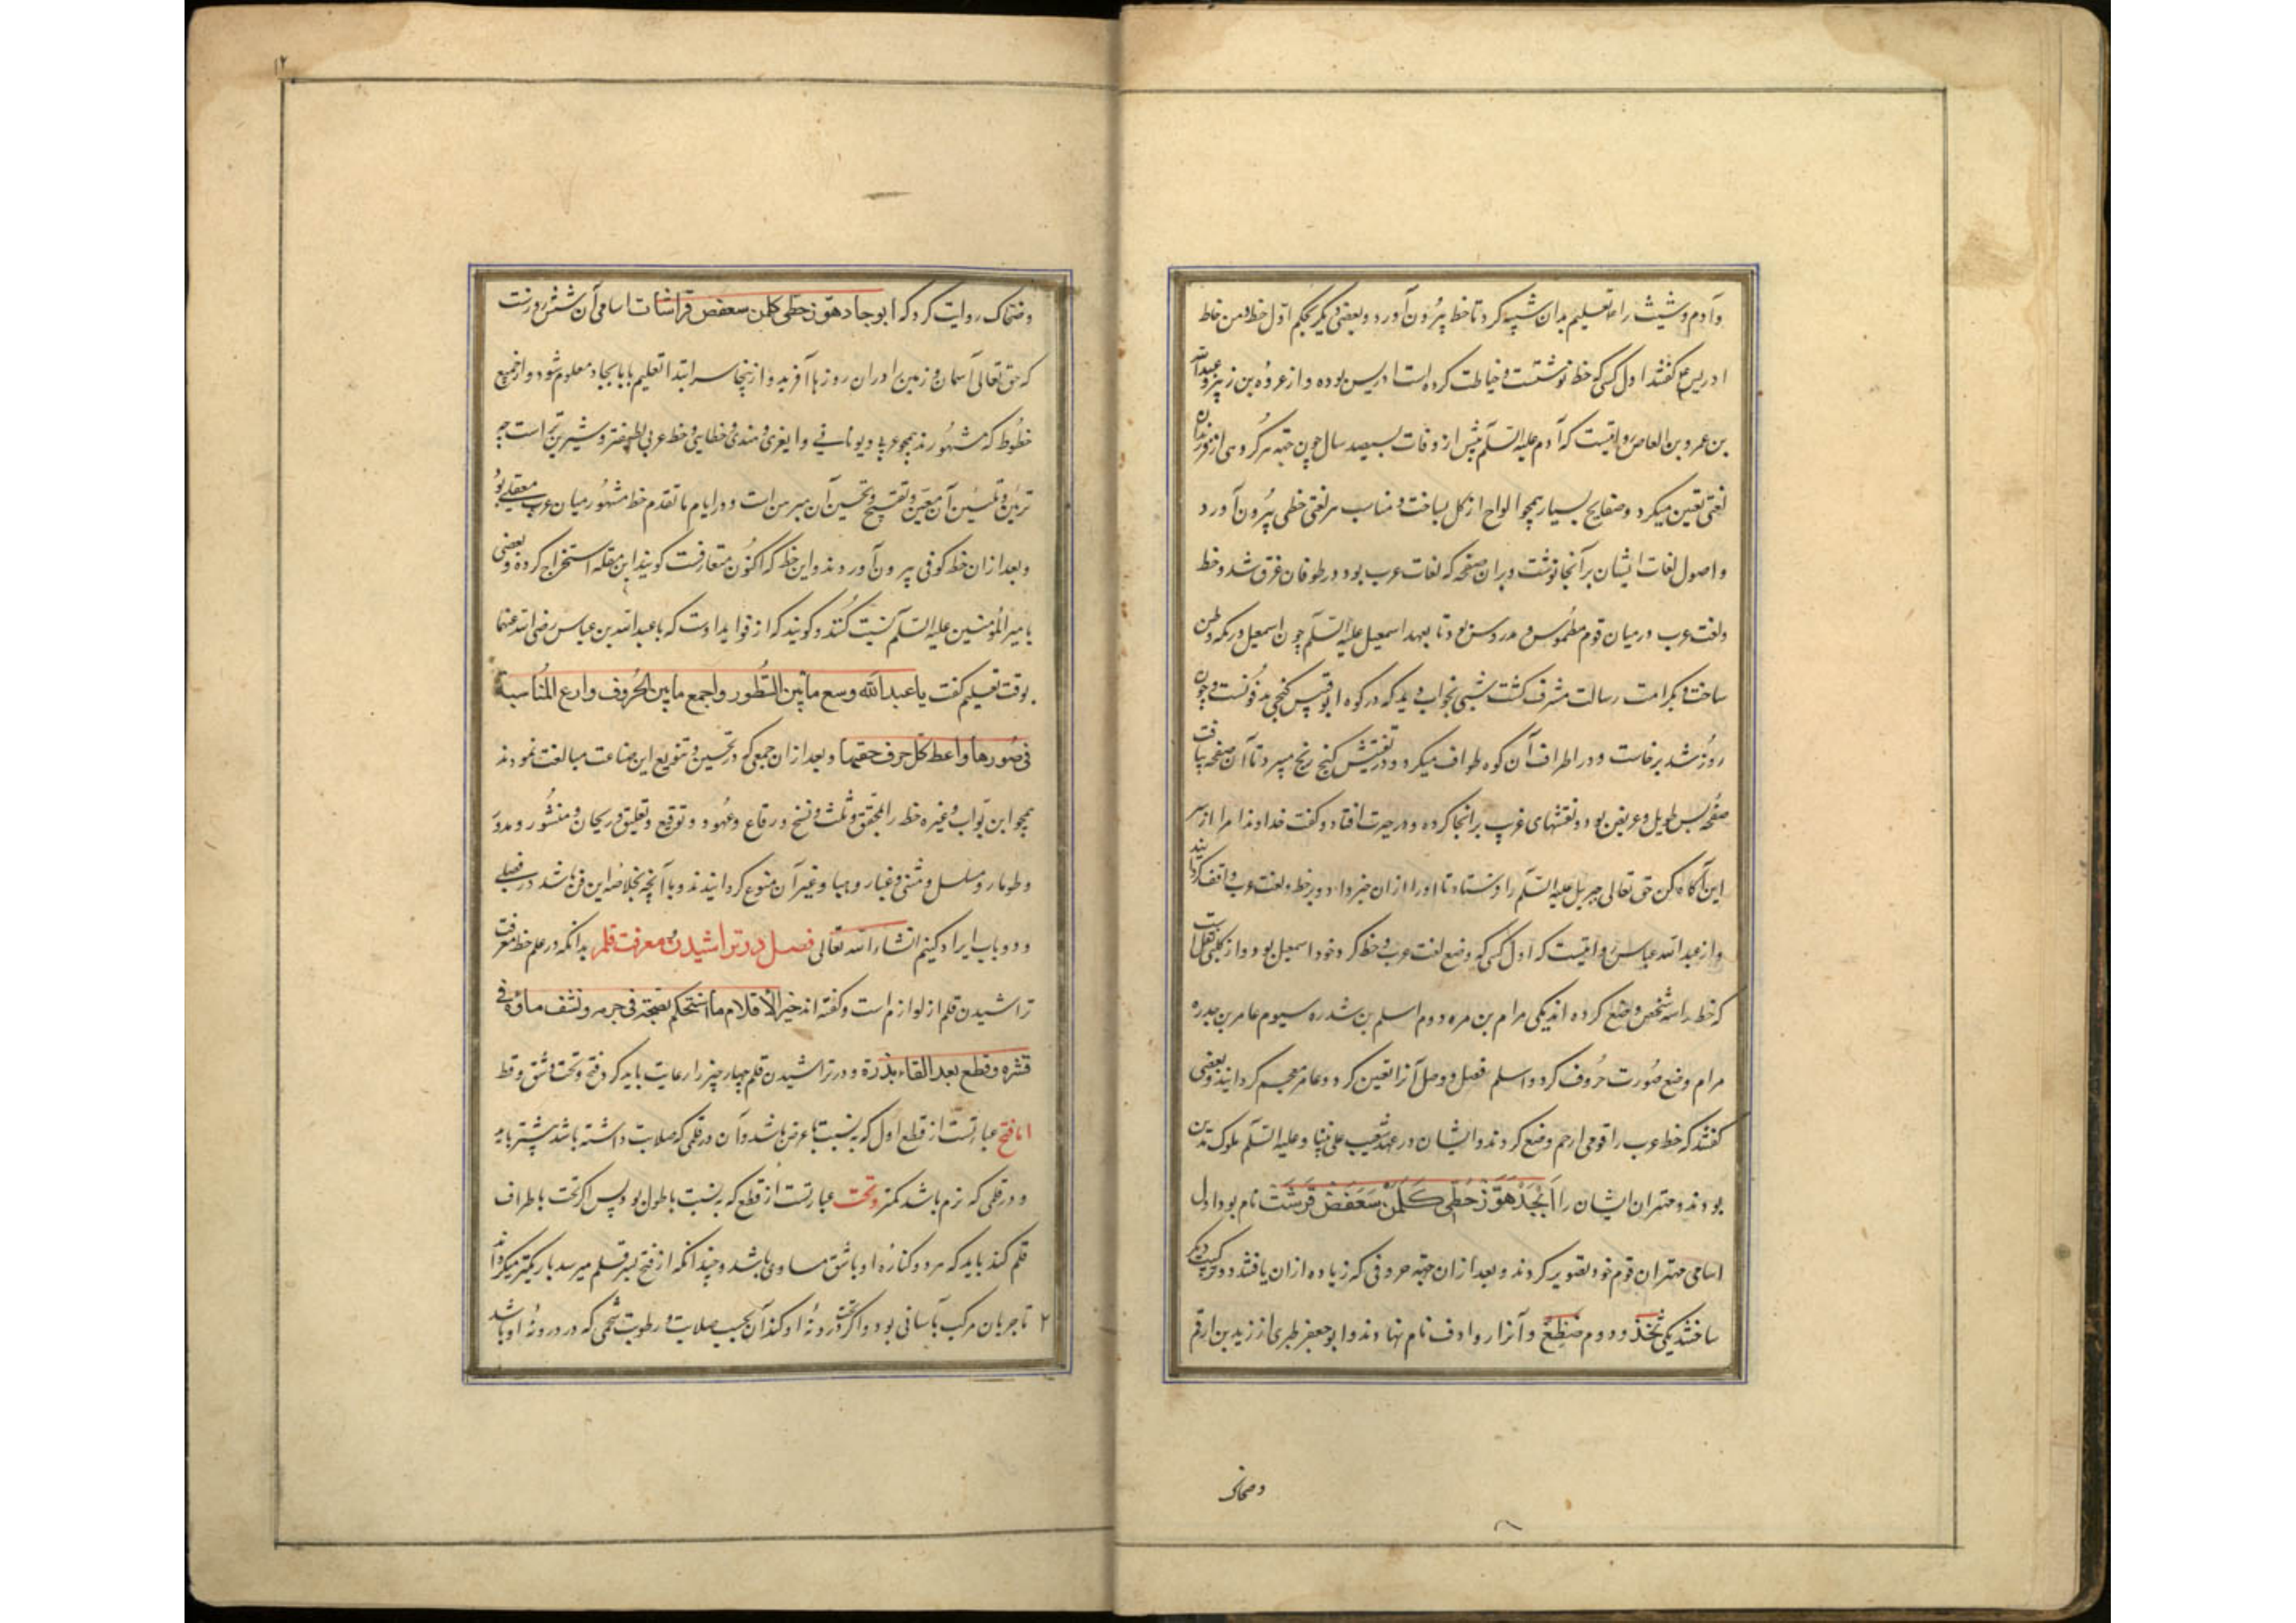 و آدم و شیث را تعلیم بدان شبیه کرد تا خط بیرون آورد و بعضی دیگر بحکم اول خط و من خاط
ادریس ع گفتند اول کسی که خط نوشتست و خیاطت کرده است ادریس بوده و از عروة بن زبیر و عبدالله
بن عمرو بن العاص روایتست که آدم علیه السلم پیش از وفات بسیصد سال چون جهة هر گروهی از فرزندان
لغتی تعین میکرد و صفایح بسیار همچو الواح از گل بساخت و مناسب هر لغتی خطی بیرون آورد
و اصول لغات ایشان بر آنجا نوشت و بران صفحه که لغات عرب بود در طوفان غرق شد و خط
و لغت عرب در میان قوم مطموس و مدروس بود تا بعهد اسمعیل علیه السلم چون اسمعیل در مکه وطن
ساخت و بکرامت رسالت مشرف گشت شبی بخواب دید که در کوه ابوقبیس گنجی مدفونست و چون
روز شد برخاست و در اطراف آن کوه طواف میکرد و در تفتیش گنج رنج میبرد تا آن صفحه بیافت
صفحه بس طویل و عریض بود و نقشهای غریب بر انجا کرده و در حیرت افتاد و گفت خداوندا مرا از سر
این آگاه کن حق تعالی جبریل علیه السلم را فرستاد تا اورا ازان خبر داد و بر خط و لغت عرب واقف گردانید
و از عبدالله عباس روایتست که اول کسی که وضع لغت عرب و خط کرد خود اسمعیل بود و از کلبی نقل است
که خط را سه شخص وضع کرده اند یکی مرام بن مره دوم اسلم بن شدره سیوم عامر بن جدره
مرام وضع صورت حروف کرد و اسلم فصل و وصل آنرا تعین کرد و عامر معجم گردانید و بعضی
گفتند که خط عرب را قومی از جم وضع کردند و ایشان در عهد شعیب علی نبینا و علیه السلم ملوک مدین
بودند و مهتران ایشان را اَبْجَدْ هَوَّز حُطّی کَلَمَنْ سَعَفَضْ قَرَشَتْ نام بود اول
اسامی مهتران قوم خود تصویر کردند و بعد ازان جهة حروفی که زیاده ازان یافتند دو ترکیب دیگر
ساختند یکی ثخذ و دوم ضظغ و آنرا روادف نام نهادند و ابوجعفر طبری از زید بن ارقم
و ضحاک
۱۲
و ضحاک روایت کرد که ابوجاد هوز حطی کلمن سعفض قراشات اسامی آن شش روزست
که حق تعالی آسمان و زمین را دران روزها آفرید و از ینجا سر ابتدا تعلیم بابا بجاد معلوم شود و از جمیع
خطوط که مشهورند همچو عربی و یونانی و ایغری و هندی و خطایی و خط عربی لطیفتر و شیرین تر است چه
تزیین و تلسین آن معین و تقبیح و تحسین آن مبرهن است و در ایام ما تقدم خط مشهور میان عرب معقلی بود
و بعد ازان خط کوفی بیرون آوردند و این خط که اکنون متعارفست گویند ابن مقله استخراج کرده و بعضی
بامیر المؤمنین علیه السلم نسبت کنند و گویند که از فواید اوست که با عبدالله بن عباس رضی الله عنهما
بوقت تعلیم گفت یا عبدالله وسع ما بین السطور واجمع ما بین الحروف وارع المناسبة
فی صورها واعط کل حرف حقها و بعد ازان جمعی که در تحسین و تنویع این صناعت مبالغت نمودند
همچو ابن بواب و غیره خط را بمحقق و ثلث و نسخ و رقاع و عهود و توقیع و تعلیق و ریحان و منشور و مدور
و طومار و مسلسل و مثنی و غبار و هبا و غیر آن منوع گردانیدند و با آنچه خلاصه این فن باشد در فصلی
و دو باب ایراد کنیم انشاء الله تعالی فصل در تراشیدن و معرفت قلم بدانکه در علم خط معرفت
تراشیدن قلم از لوازم است و گفته اند خیر الاقلام ما استحکم نضجة فی جرمه ونشف ماؤه فی
قشره وقطع بعد القاء بذرة و در تراشیدن قلم چهار چیز را رعایت باید کرد فتح و نحت و شق و قط
اما فتح عبارتست از قطع اول که به نسبت با عرض باشد و آن در قلمی که صلابت داشته باشد بیشتر باید
و در قلمی که نرم باشد کمتر و نحت عبارتست از قطع که به نسبت با طول بود پس اگر نحت با طراف
قلم کند باید که هر دو کناره او با شق مساوی باشد و چندانکه از فتح بسر قلم میرسد باریکتر میگرداند
تا جریان مرکب بآسانی بود و اگر نحت در درونه او کند آن بحسب صلابت و رطوبت شحمی که در درونه او باشد